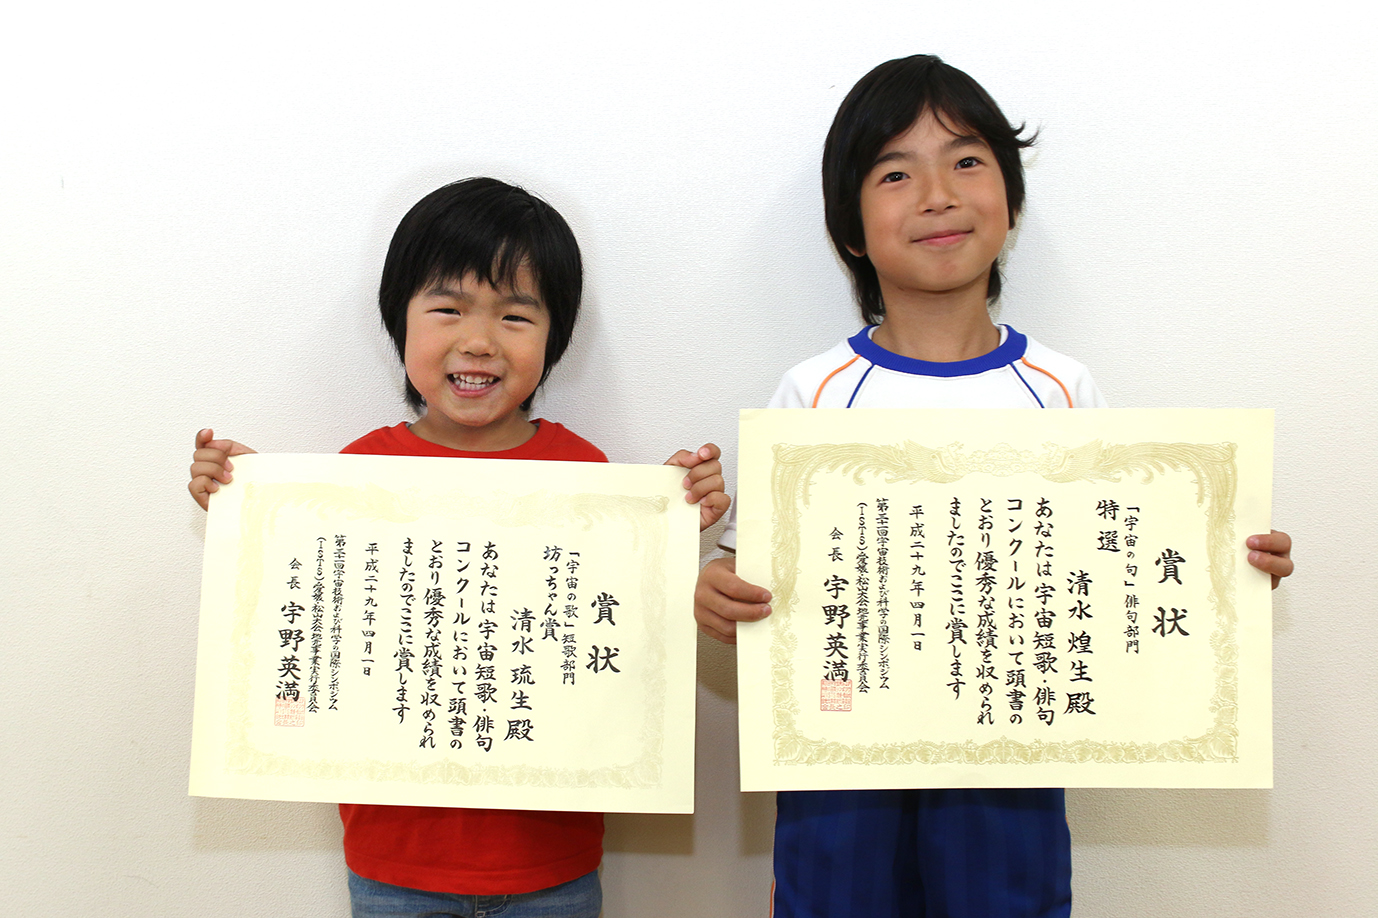 賞状
「宇宙の歌」短歌部門
坊っちゃん賞
清水琉生殿
あなたは宇宙短歌・俳句
コンクールにおいて頭書の
とおり優秀な成績を収められ
ましたのでここに賞します
平成二十九年四月一日
第三十一回宇宙技術および科学の国際シンポジウム
(ISTS)愛媛・松山大会地元事業実行委員会
会長 宇野英満
賞状
「宇宙の句」俳句部門
特選
清水煌生殿
あなたは宇宙短歌・俳句
コンクールにおいて頭書の
とおり優秀な成績を収められ
ましたのでここに賞します
平成二十九年四月一日
第三十一回宇宙技術および科学の国際シンポジウム
(ISTS)愛媛・松山大会地元事業実行委員会
会長 宇野英満